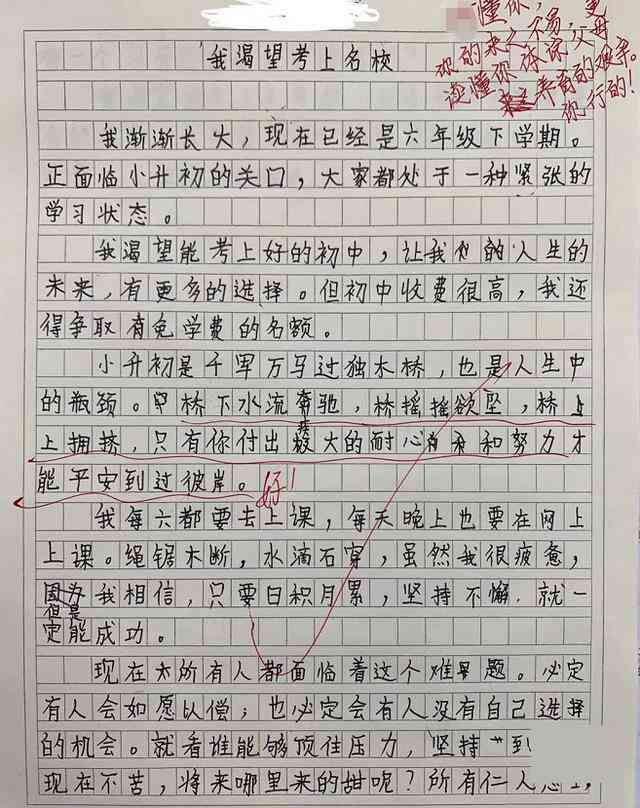 懂你，更
你的来之不易，
该懂你体谅父母
养育的艰辛。
你行的！
我渴望考上名校
我渐渐长大，现在已经是六年级下学期。
正面临小升初的关口，大家都处于一种紧张的
学习状态。
我渴望能考上好的初中，让我的人生的
未来，有更多的选择。但初中收费很高，我还
得争取有免学费的名额。
小升初是千军万马过独木桥，也是人生中
的瓶颈。桥下水流奔驰，桥摇摇欲坠，桥
上拥挤，只有你付出最大的耐心和努力才
能平安到过彼岸。好！
我每六都要去上课，每天晚上也要在网上
上课。绳锯木断，水滴石穿，虽然我很疲惫，
但是我相信，只要日积月累，坚持不懈，就一
定能成功。
现在所有人都面临着这个难题。必定
有人会如愿以偿；也必定会有人没有自己选择
的机会。就看谁能够顶住压力，坚持到
现在不苦，将来哪里来的甜呢？所有仁人